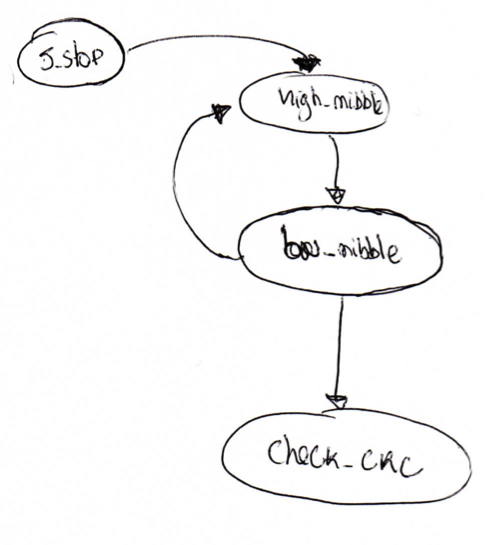 s_stop
high_nibble
low_nibble
check_CRC